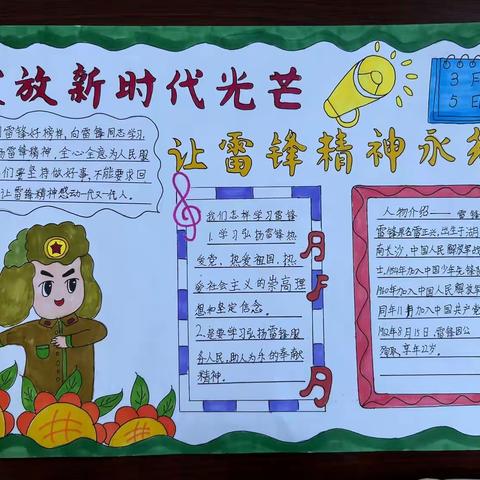 放新时代光芒
3月
5日
让雷锋精神永
雷锋好榜样,向雷锋同志学习,
雷锋精神,全心全意为人民服
们要坚持做好事,不能要求回
让雷锋精神感动一代又一代人。
我们怎样学习雷锋
1.学习弘扬雷锋热
爱党,热爱祖国,热
爱社会主义的崇高理
想和坚定信念。
2.是要学习弘扬雷锋服
务人民,助人为乐的奉献
精神。
人物介绍——雷锋
雷锋原名雷正兴,出生于湖
南长沙,中国人民解放军战
士,1954年加入中国少年先锋
1960年加入中国人民解放军
同年11月加入中国共产党
1962年8月15日,雷锋因公
殉职,享年22岁。